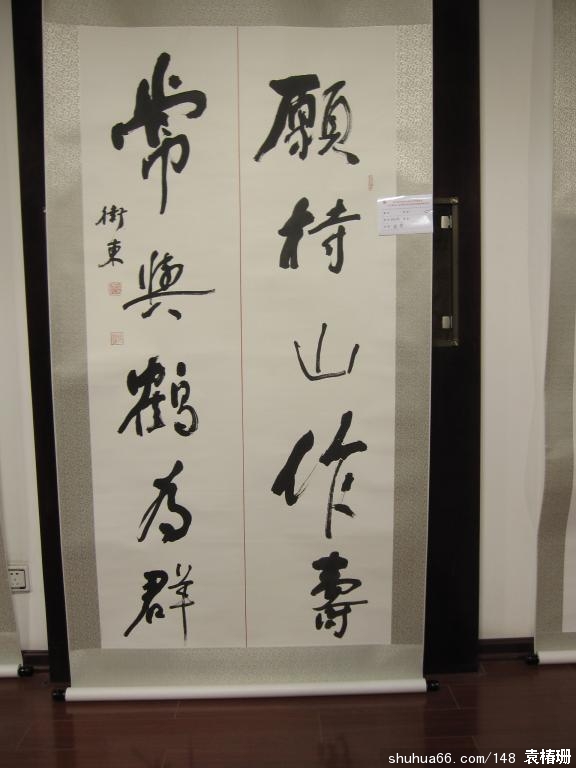 願持山作壽
常與鶴為群
衛東
shuhua66.com/148 袁椿珊